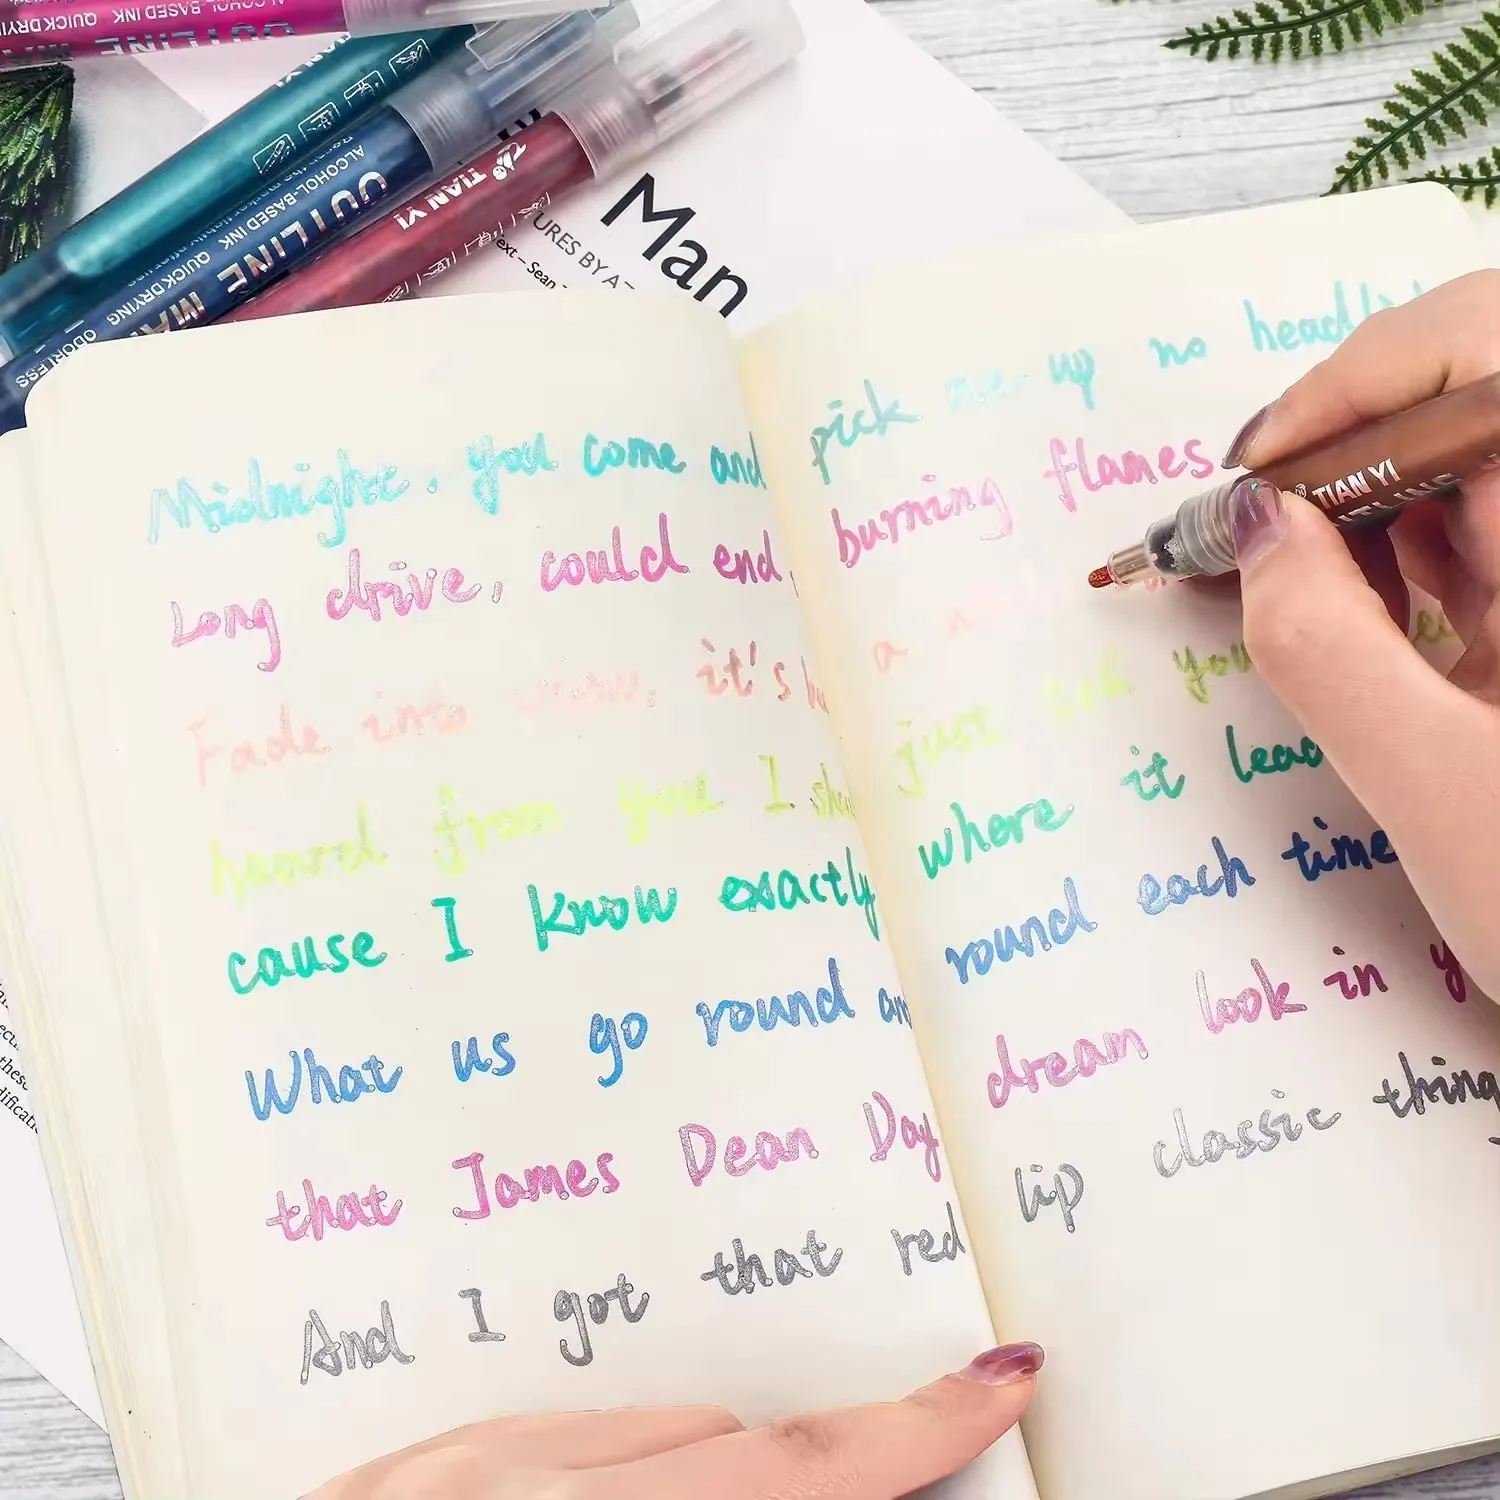 ALCOHOL-BASED INK QUICK DRYI
OUTLINE MA
TIAN YI
ALCOHOL-BASED INK QUICK DRYING ODORLESS
OUTLINE MA
TIAN YI
Man
URES BY AZ
ext – Sean
Midnight, you come and pick me up no headli
Long drive, could end, burning flames
Fade into view, it's a
heard from you I just you
cause I know exactly where it lead
What us go round an round each time
that James Dean Day dream look in y
And I got that red lip classic thing
TIAN YI
these
dificati